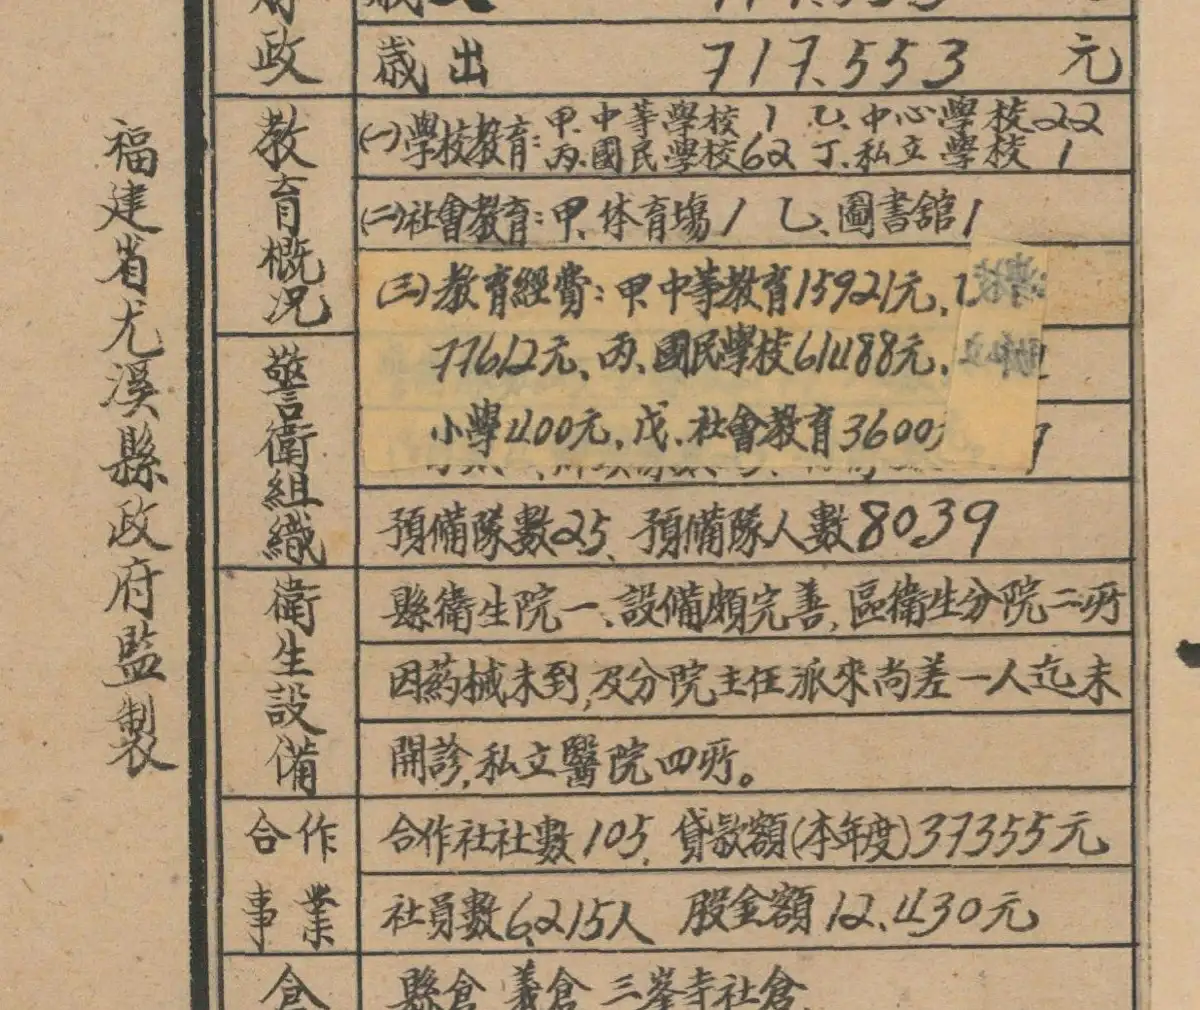 政
歲出 717.553 元
教育概況
(一)學校教育:甲.中等學校 1 乙.中心學校22
丙.國民學校62 丁.私立學校 1
(二)社會教育:甲、体育場1 乙、圖書舘1
(三)教育經費:甲中等教育15921元、
77612元、丙、國民學校61488元、
小學400元、戊、社會教育3600
警衛組織
預備隊數25、預備隊人數8039
衛生設備
縣衛生院一、設備頗完善,區衛生分院二所
因葯械未到,及分院主任派來尚差一人迄未
開診,私立醫院四所。
合作事業
合作社社數105、貸款額(本年度)37355元
社員數6,215人 股金額12,430元
倉
縣倉 義倉 三峯寺社倉
福建省尤溪縣政府監製